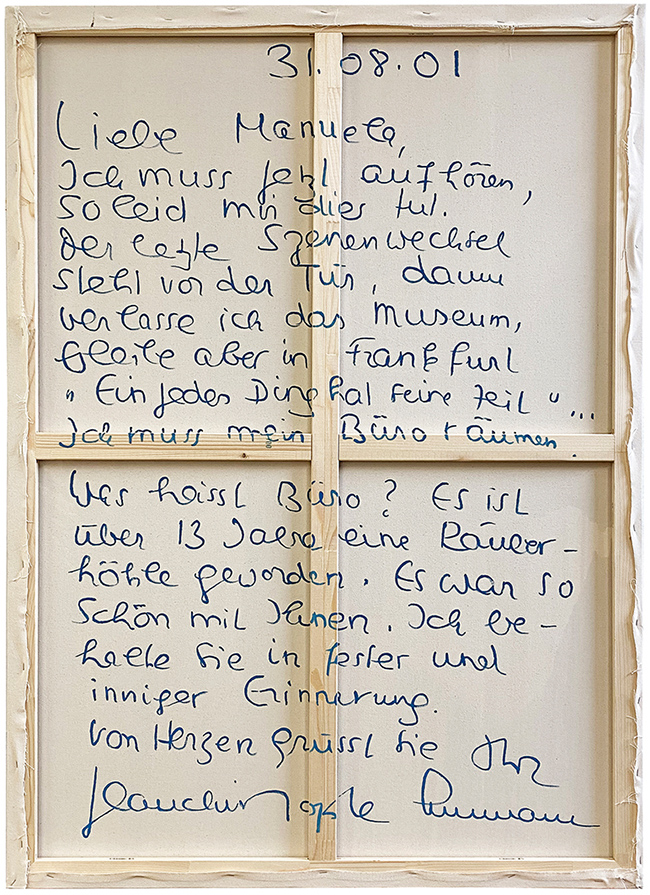 31.08.01
Liebe Manuela,
Ich muss jetzt aufhören,
so leid mir dies tut.
Der letzte Szenenwechsel
steht vor der Tür, dann
verlasse ich das Museum,
bleibe aber in Frankfurt
"Ein jedes Ding hat seine Zeit"...
Ich muss mein Büro räumen.
Was heisst Büro? Es ist
über 13 Jahre eine Räuber-
höhle geworden. Es war so
schön mit Ihnen. Ich be-
halte Sie in fester und
inniger Erinnerung.
Von Herzen grüsst Sie Ihr
Jean-Christophe Ammann